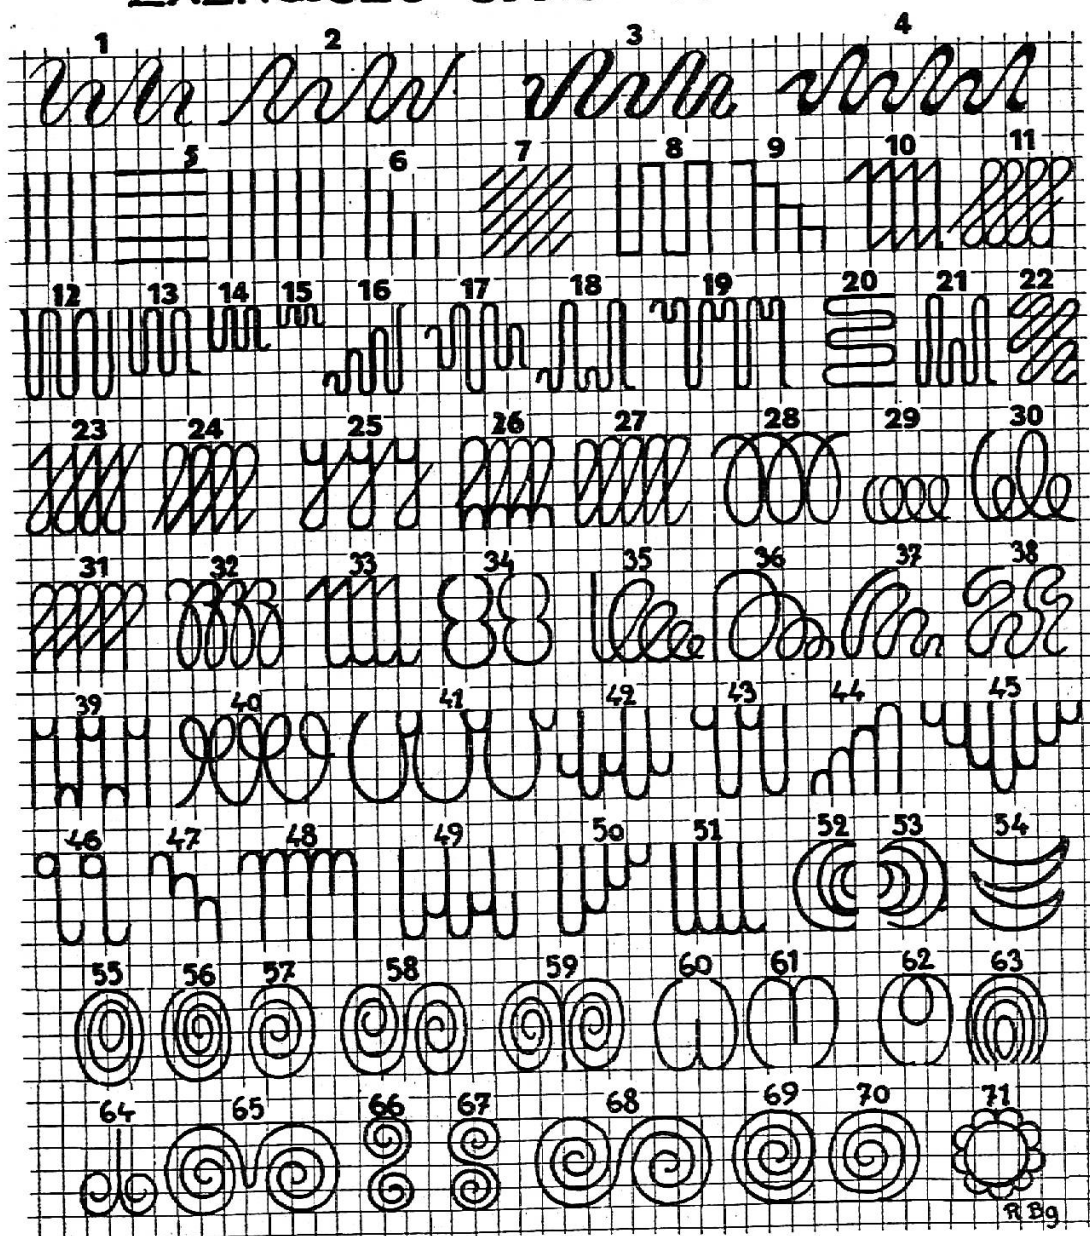 1 2 3 4
5 6 7 8 9 10 11
12 13 14 15 16 17 18 19 20 21 22
23 24 25 26 27 28 29 30
31 32 33 34 35 36 37 38
39 40 41 42 43 44 45
46 47 48 49 50 51 52 53 54
55 56 57 58 59 60 61 62 63
64 65 66 67 68 69 70 71
R Bg